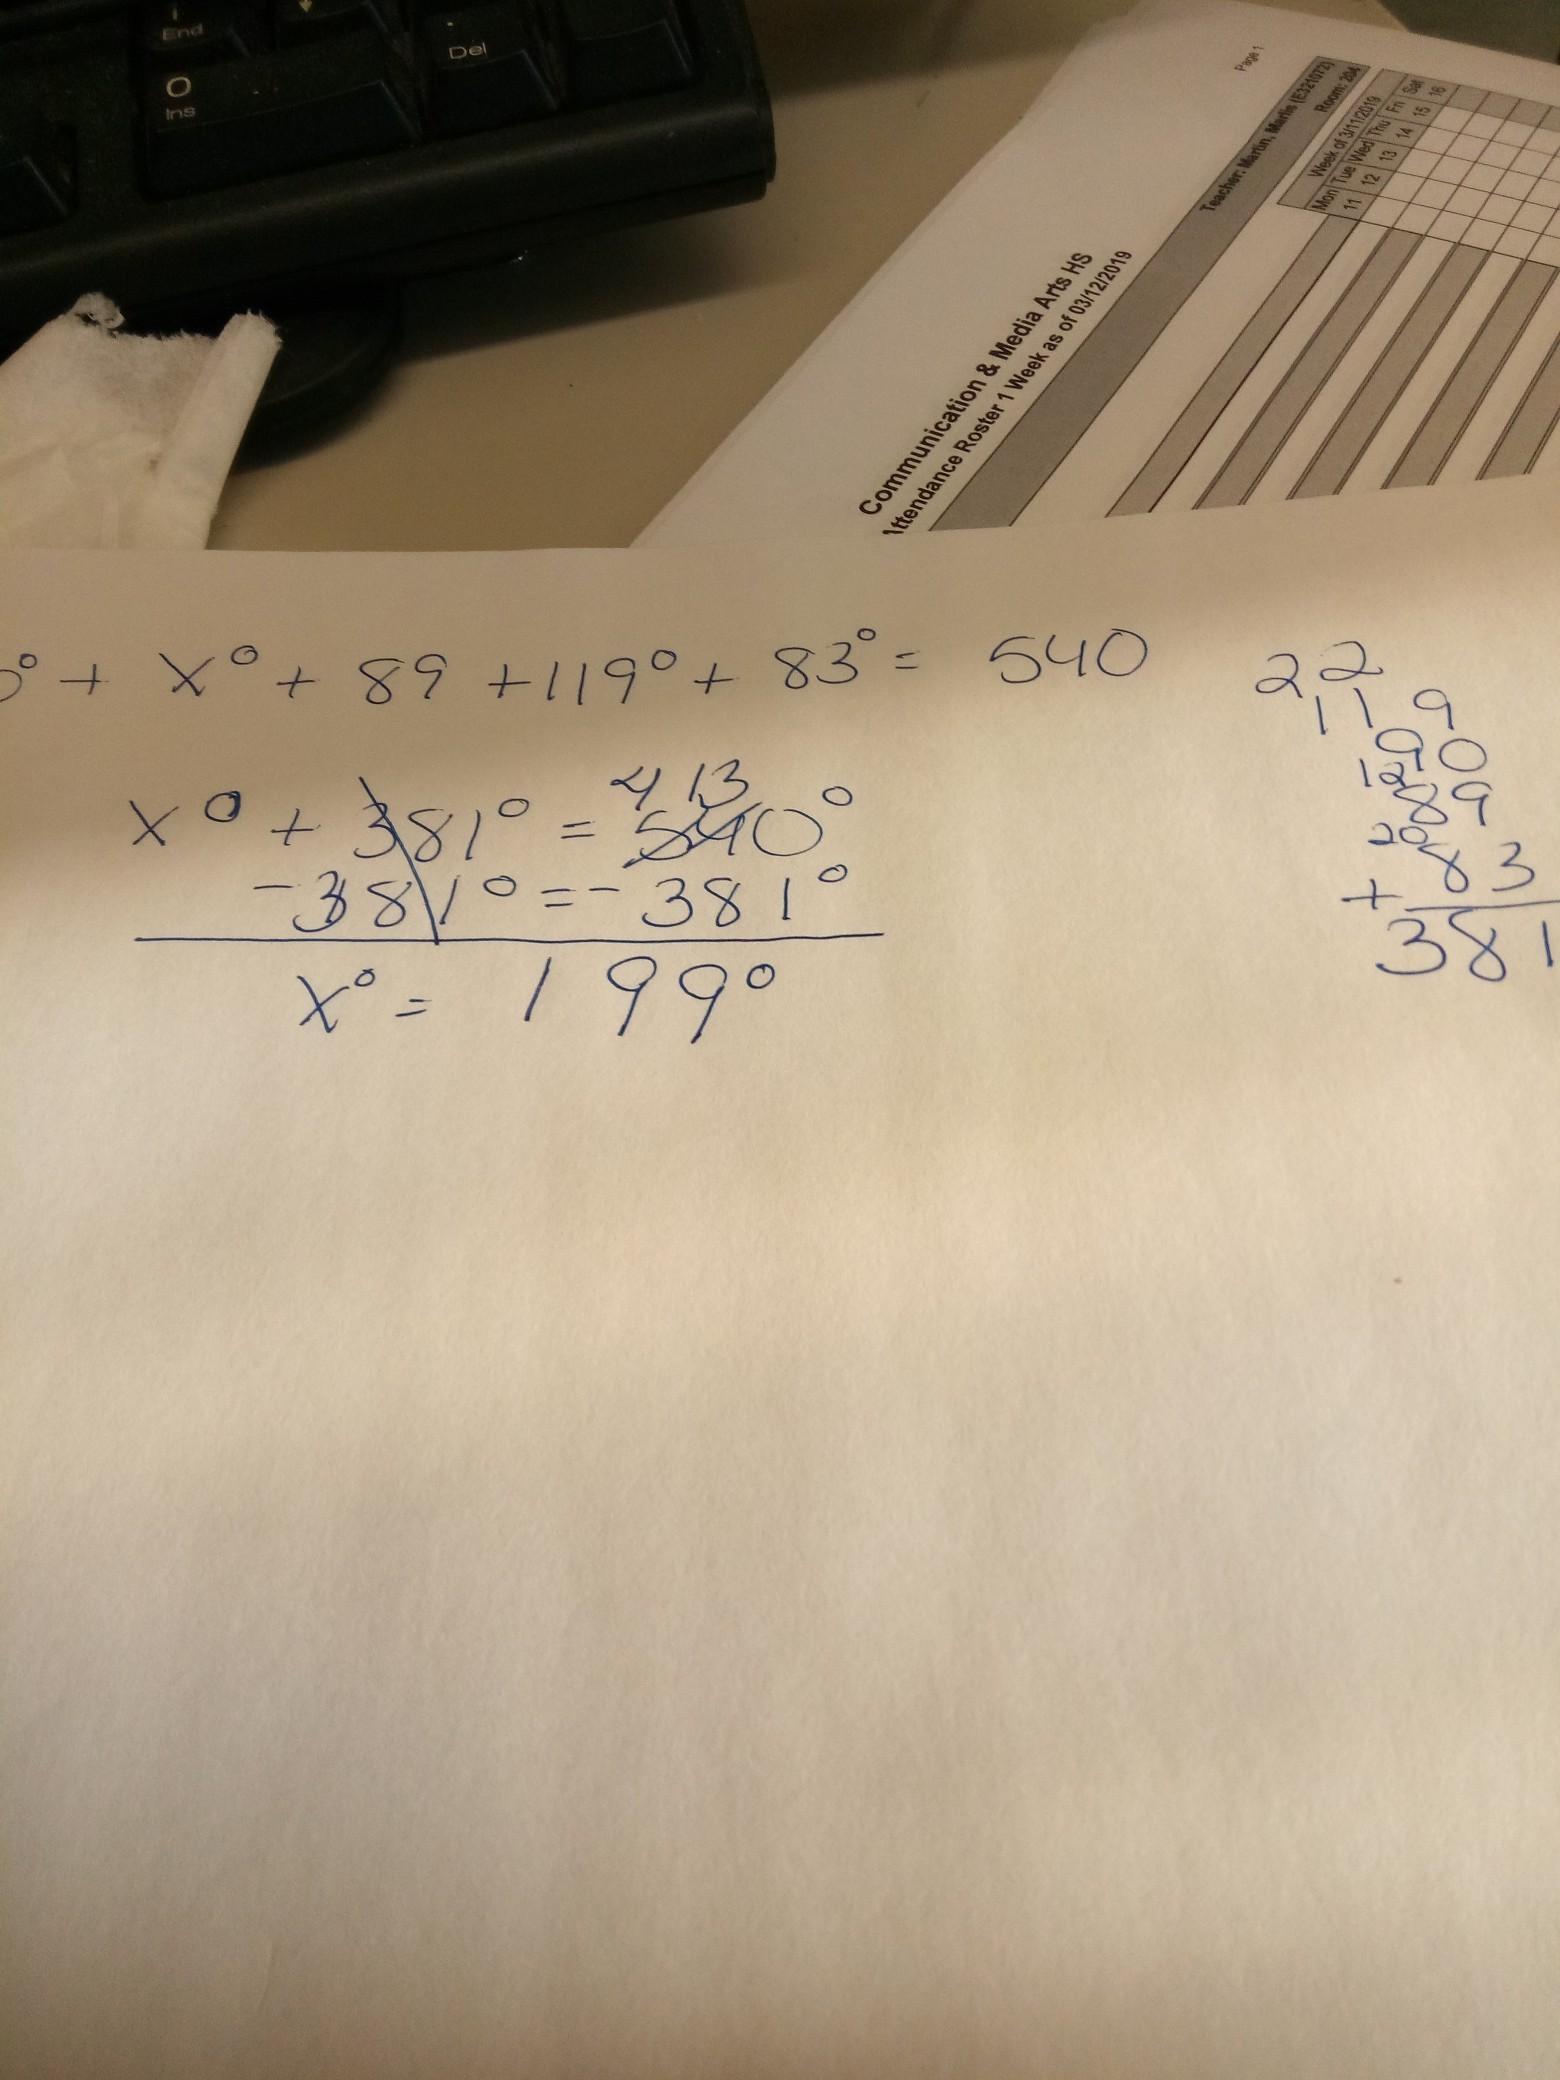 End
Del
0
Ins
Page 1
Teacher: Martin, Marlis (E321072)
Room: 204
Week of 3/11/2019
Mon Tue Wed Thu Fri Sat
11 12 13 14 15 16
Communication & Media Arts HS
Attendance Roster 1 Week as of 03/12/2019
° + x° + 89 + 119° + 83° = 540
4 13
x° + 381° = 540°
-381° = - 381°
x° = 199°
22
119
90
12
89
20
+ 83
381